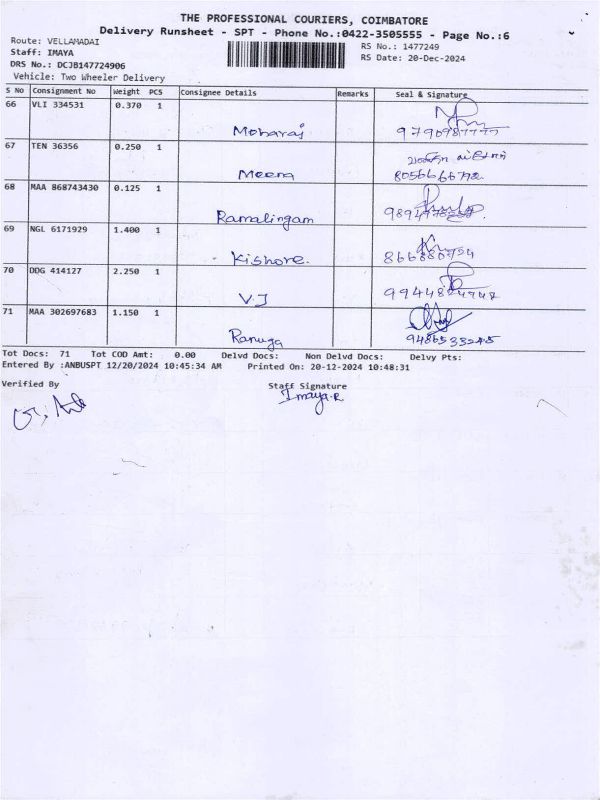 THE PROFESSIONAL COURIERS, COIMBATORE
Delivery Runsheet - SPT - Phone No.:0422-3505555 - Page No.:6
Route: VELLAMADAI
RS No.: 1477249
Staff: IMAYA
RS Date: 20-Dec-2024
DRS No.: DCJB147724906
Vehicle: Two Wheeler Delivery
S No Consignment No Weight PCS Consignee Details Remarks Seal & Signature
66 VLI 334531 0.370 1
Moharaj
67 TEN 36356 0.250 1
Meena 8056666792
68 MAA 868743430 0.125 1
Ramalingam
69 NGL 6171929 1.400 1
Kishore.
70 DDG 414127 2.250 1
VJ
71 MAA 302697683 1.150 1
Ranuga
Tot Docs: 71 Tot COD Amt: 0.00 Delvd Docs: Non Delvd Docs: Delvy Pts:
Entered By :ANBUSPT 12/20/2024 10:45:34 AM Printed On: 20-12-2024 10:48:31
Verified By Staff Signature
Imaya.R